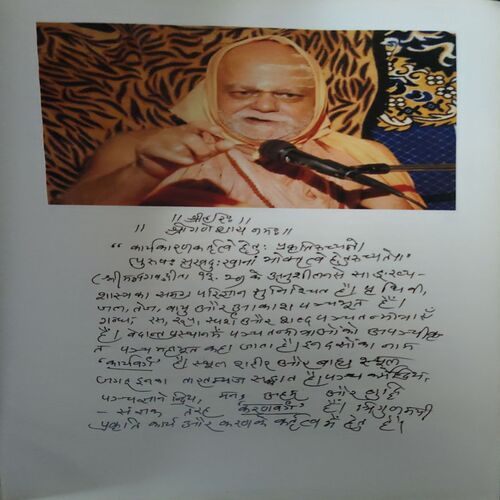 ॥ श्रीहरिः ॥
॥ श्रीगणेशाय नमः ॥
"कार्यकारणकर्तृत्वे हेतुः प्रकृतिरुच्यते।
पुरुषः सुखदुःखानां भोक्तृत्वे हेतुरुच्यते॥"
(श्रीमद्भगवद्गीता १३. २०) के अनुशीलनसे सांख्य-
शास्त्रका समग्र परिज्ञान सुनिश्चित है। पृथिवी,
जल, तेज, वायु और आकाश पञ्चभूत हैं।
गन्ध, रस, रूप, स्पर्श और शब्द पञ्चतन्मात्राएँ
हैं। वेदान्तप्रस्थानमें पञ्चतन्मात्राओंको अपञ्चीकृ
त पञ्चमहाभूत कहा जाता है। इन दशोंका नाम
"कार्यवर्ग" है। स्थूल शरीर और बाह्य स्थूल
जगत् इनका संघात है। पञ्चकर्मेन्द्रिय,
पञ्चज्ञानेन्द्रिय, मन, अहम् और बुद्धि
- संज्ञक तेरह करणवर्ग हैं। त्रिगुणमयी
प्रकृति कार्य और करणके कर्तृत्वमें हेतु है।